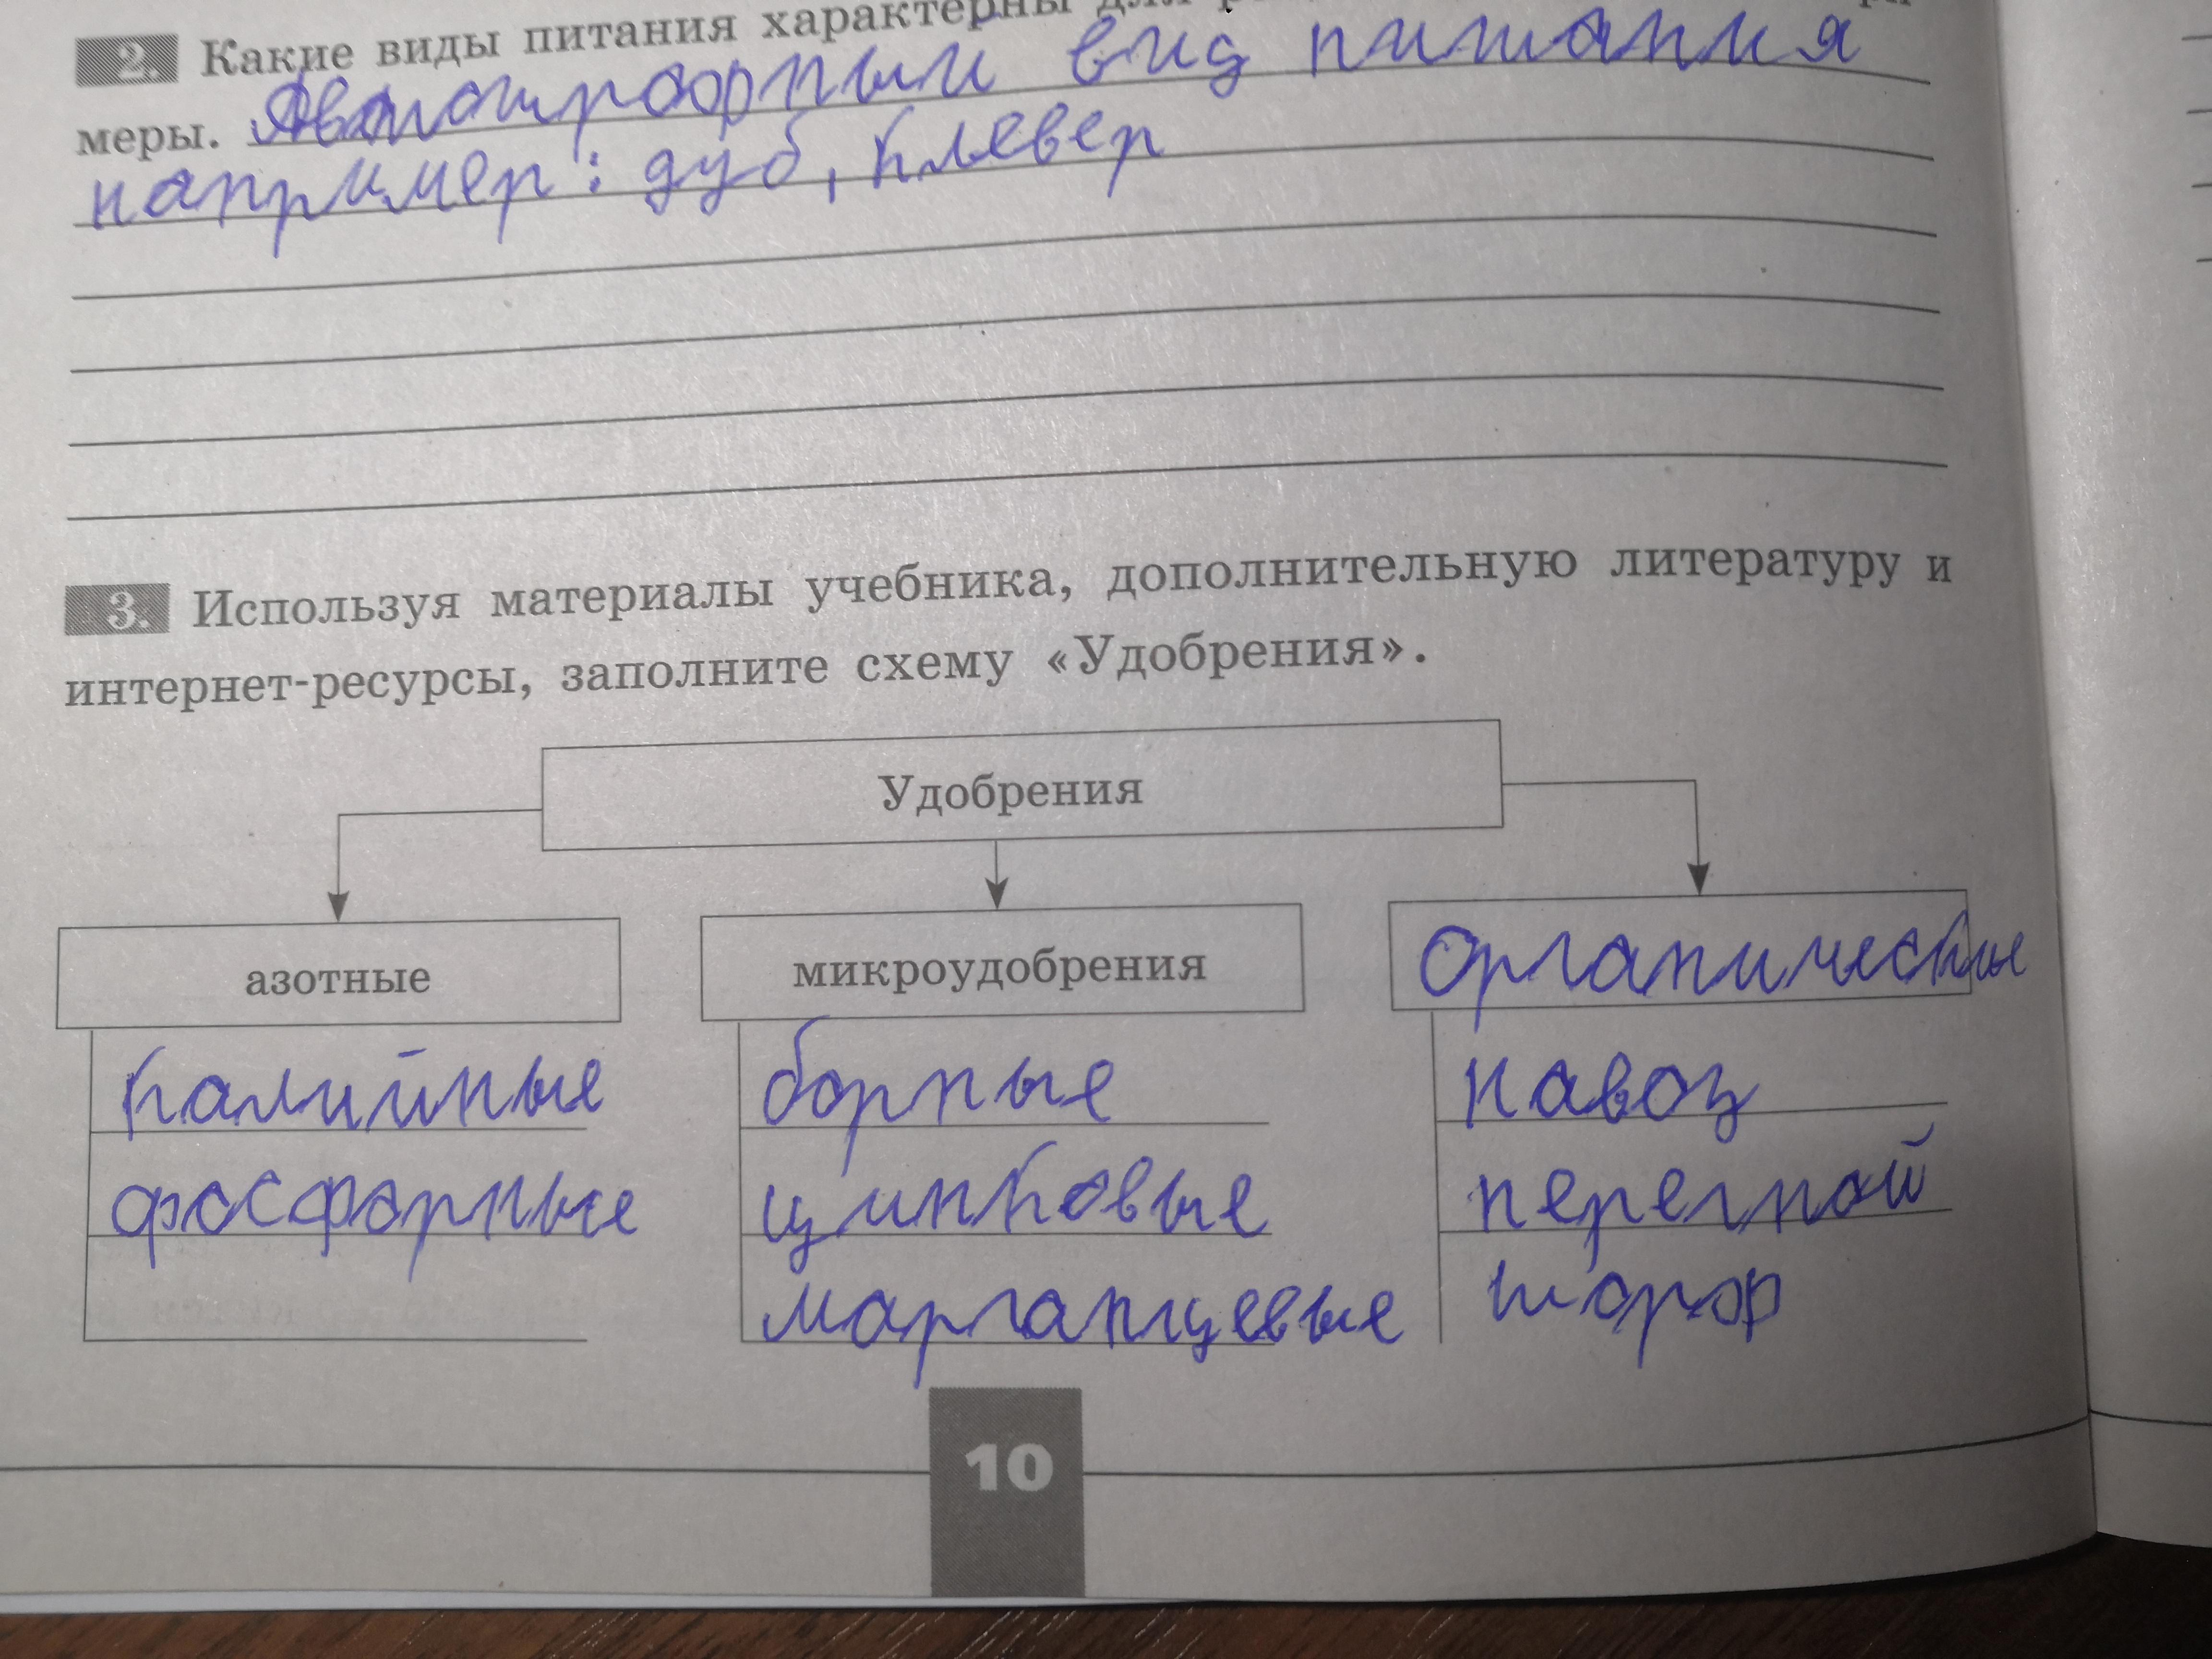 2. Какие виды питания характерны для
меры. Автотрофный вид питания
например: дуб, клевер
3. Используя материалы учебника, дополнительную литературу и
интернет-ресурсы, заполните схему «Удобрения».
Удобрения
азотные микроудобрения Органические
калийные борные навоз
фосфорные цинковые перегной
марганцевые торф
10